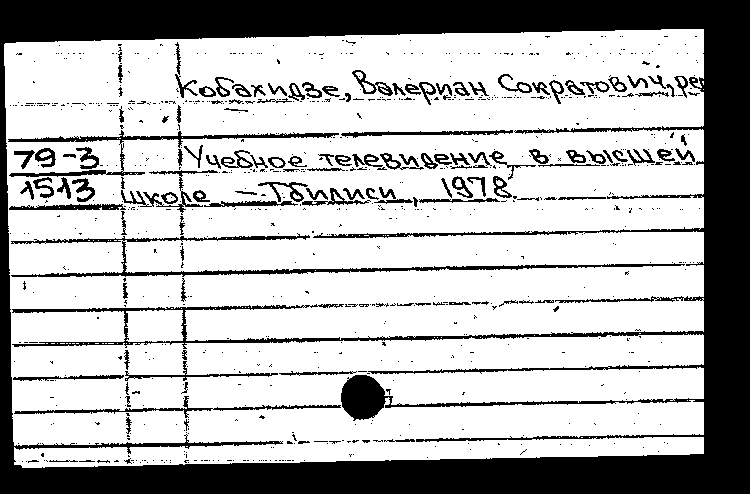 Кобахидзе, Валериан Сократович, ре
79-3 Учебное телевидение в высшей
1513 школе - Тбилиси, 1978